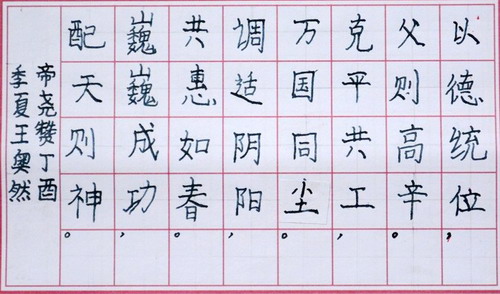 以德统位，
父则高辛。
克平共工，
万国同尘。
调适阴阳，
共惠如春。
巍巍成功，
配天则神。
帝尧赞丁酉
季夏王奥然